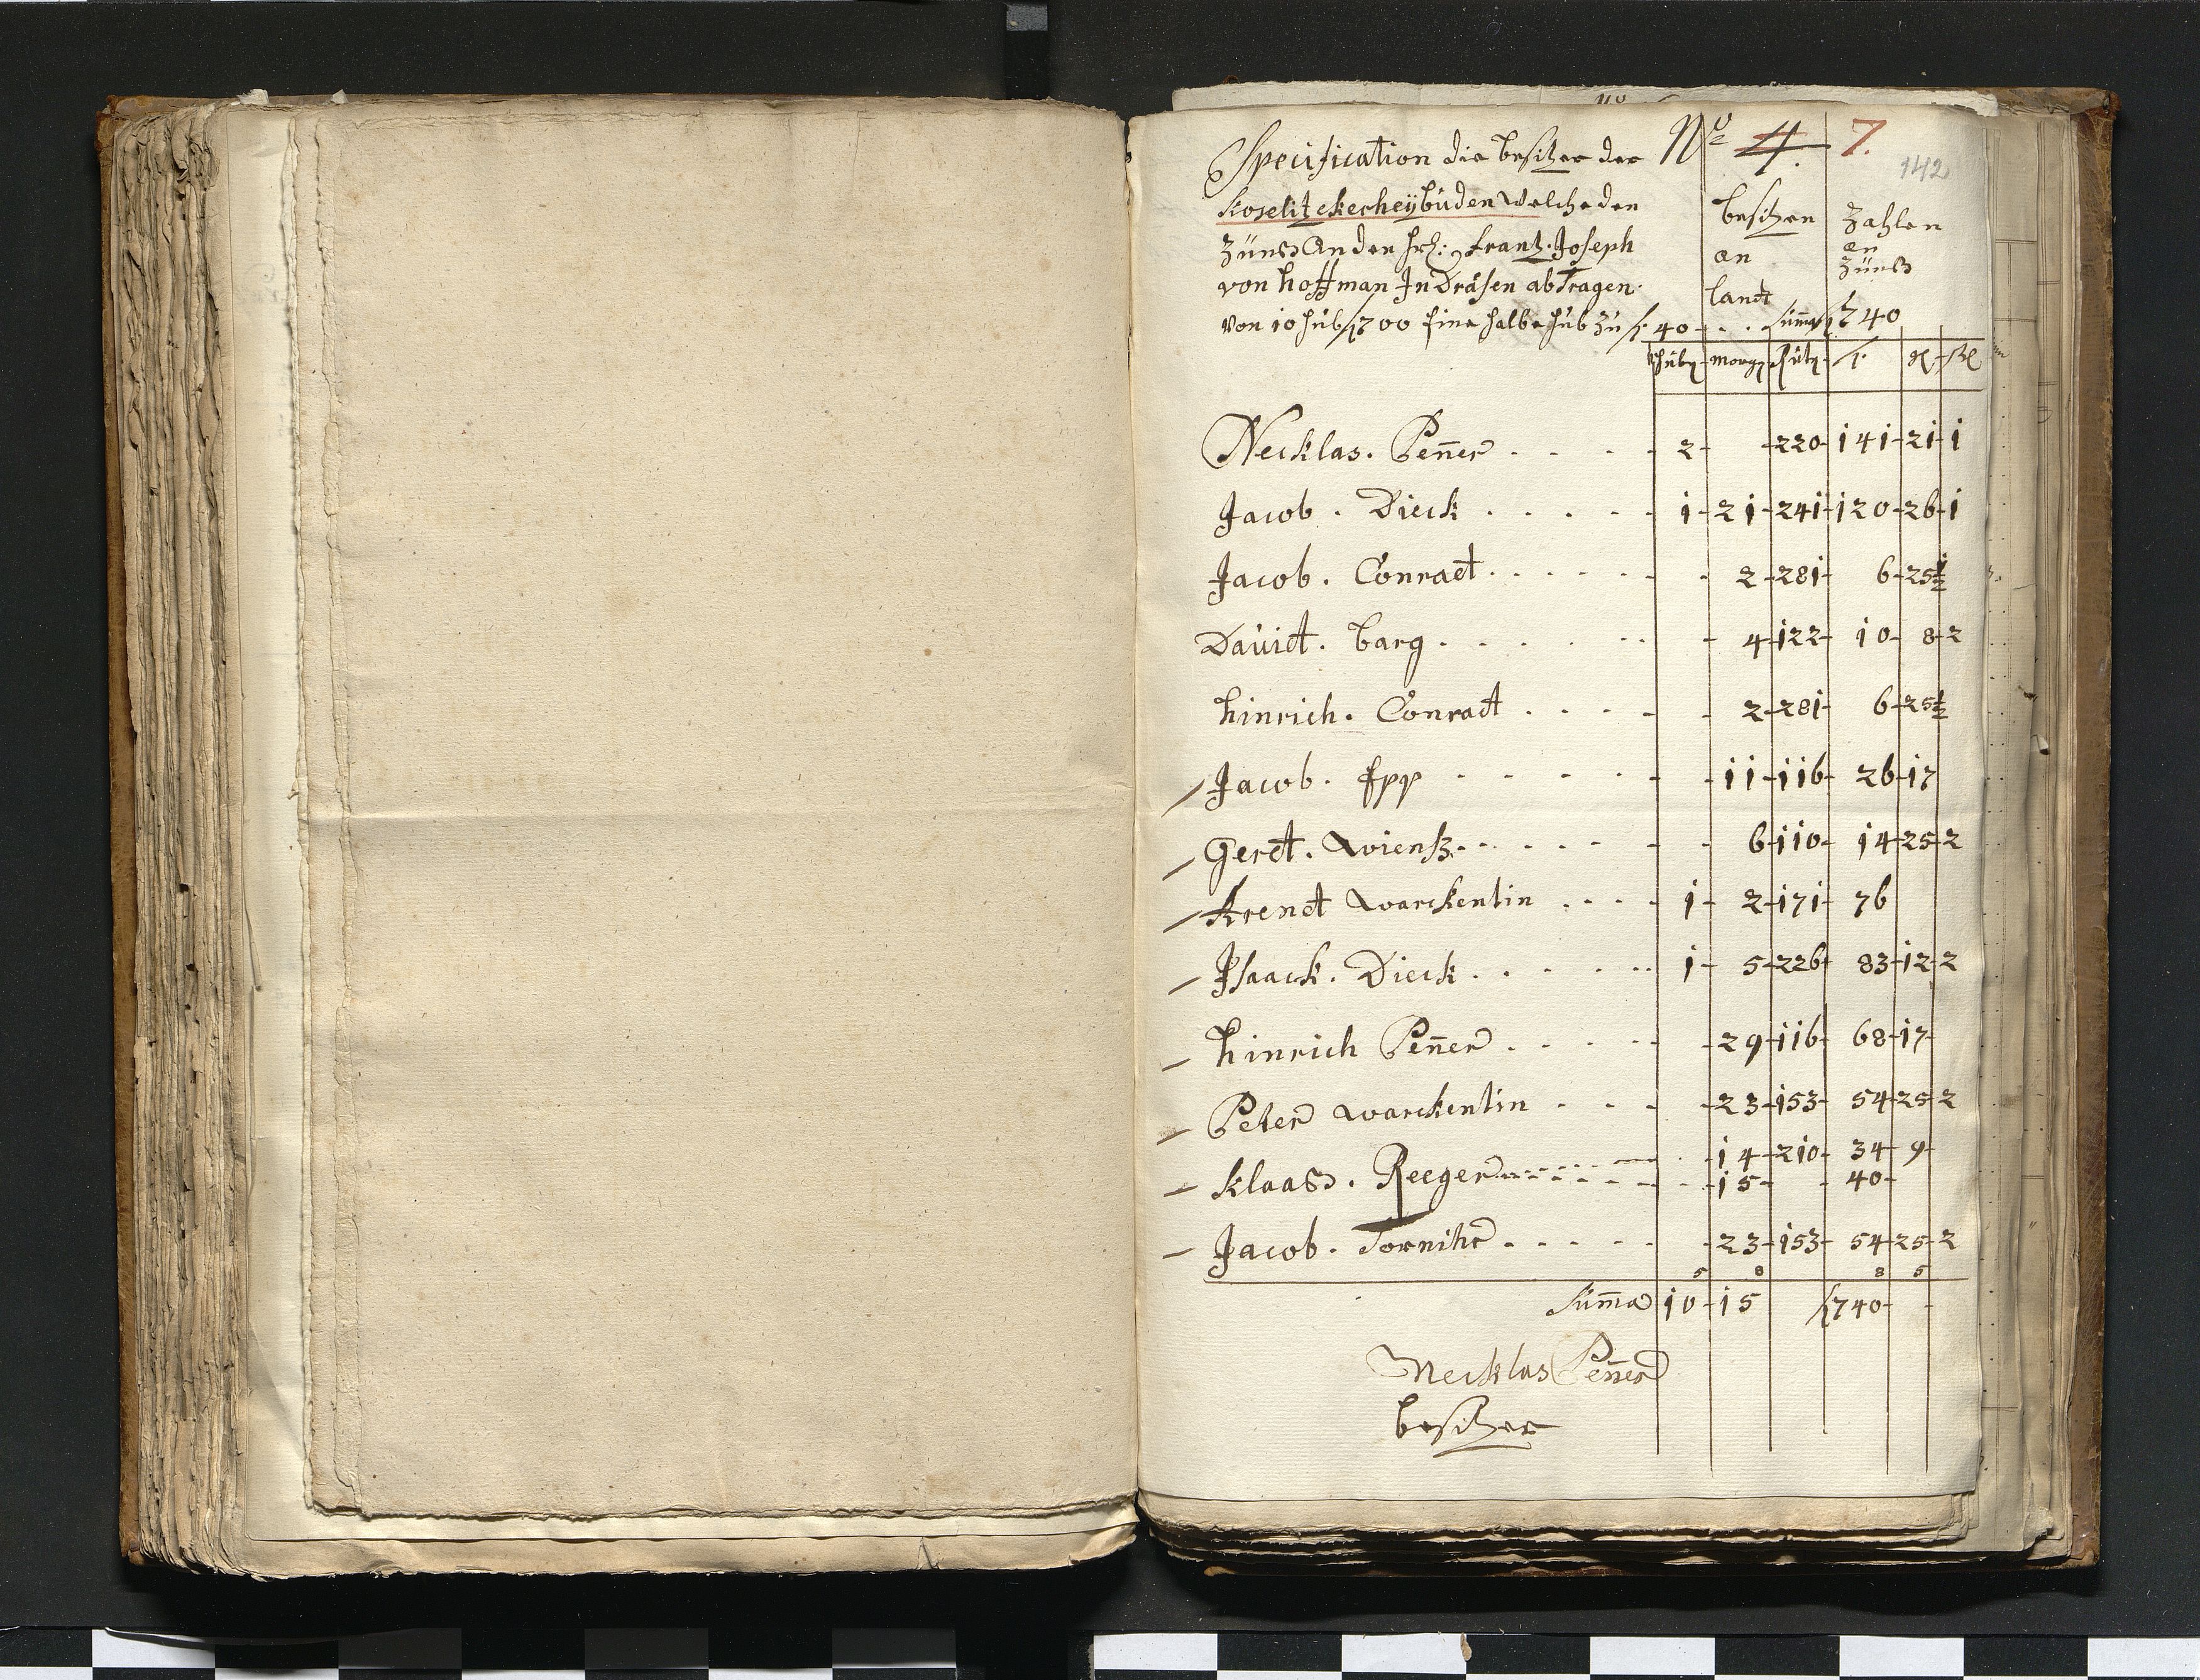 Specification die besitzer der No 4. 7.
142
Koselitzckerheybuden Welche den besitzen Zahlen
Zünß An den H: Frantz Joseph an an
von Hoffman In Dräsen abTragen landt Zünß
Von 10 hub f 700 Eine halbe hub Zu f 40 - . . Suma f 740
hub morg Ruht f
Necklas. Peñer . . . . 2 - 220 - 141 - 21 - 1
Jacob. Dieck . . . . . 1 - 21 - 241 - 120 - 26 - 1
Jacob. Conradt . . . . . . 2 - 281 - 6 - 25 ½
Davidt. Barg . . . . . . 4 - 122 - 10 - 8 - 2
Hinrich. Conradt . . . . . 2 - 281 - 6 - 25 ½
Jacob. Epp . . . . . . 11 - 116 - 26 - 17
Gerdt. Wienß . . . . . . 6 - 110 - 14 - 25 - 2
Arendt Warckentin . . . . 1 - 2 - 171 - 76
Isaack. Dieck . . . . . . 1 - 5 - 226 - 83 - 12 - 2
Hinrich Peñer . . . . . 29 - 116 - 68 - 17 -
Peter Warckentin . . . 23 - 153 - 54 - 25 - 2
14 - 210 - 34 - 9 -
Klaaß. Reeger . . . . . . 15 - . 40 -
Jacob. Tornihr . . . . . 23 - 153 - 54 - 25 - 2
5 8 8 5
Suma 10 - 15 f 740 - -
Necklas Peñer
besitzer